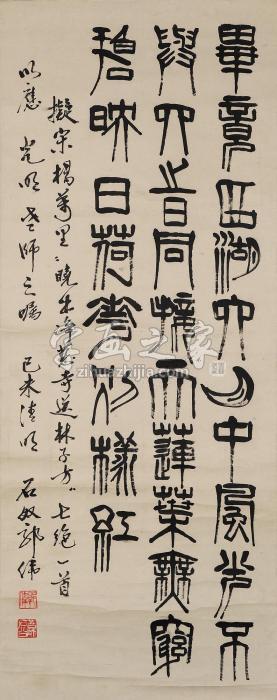 畢竟西湖六月中風光不
與四旹同接天蓮葉無窮
碧映日荷花別樣紅
擬宋楊萬里"曉出淨慈寺送林子方"七絕一首
以應 光明老師之囑 己未清明 石奴郭偉
字画之家
zihuazhijia.com